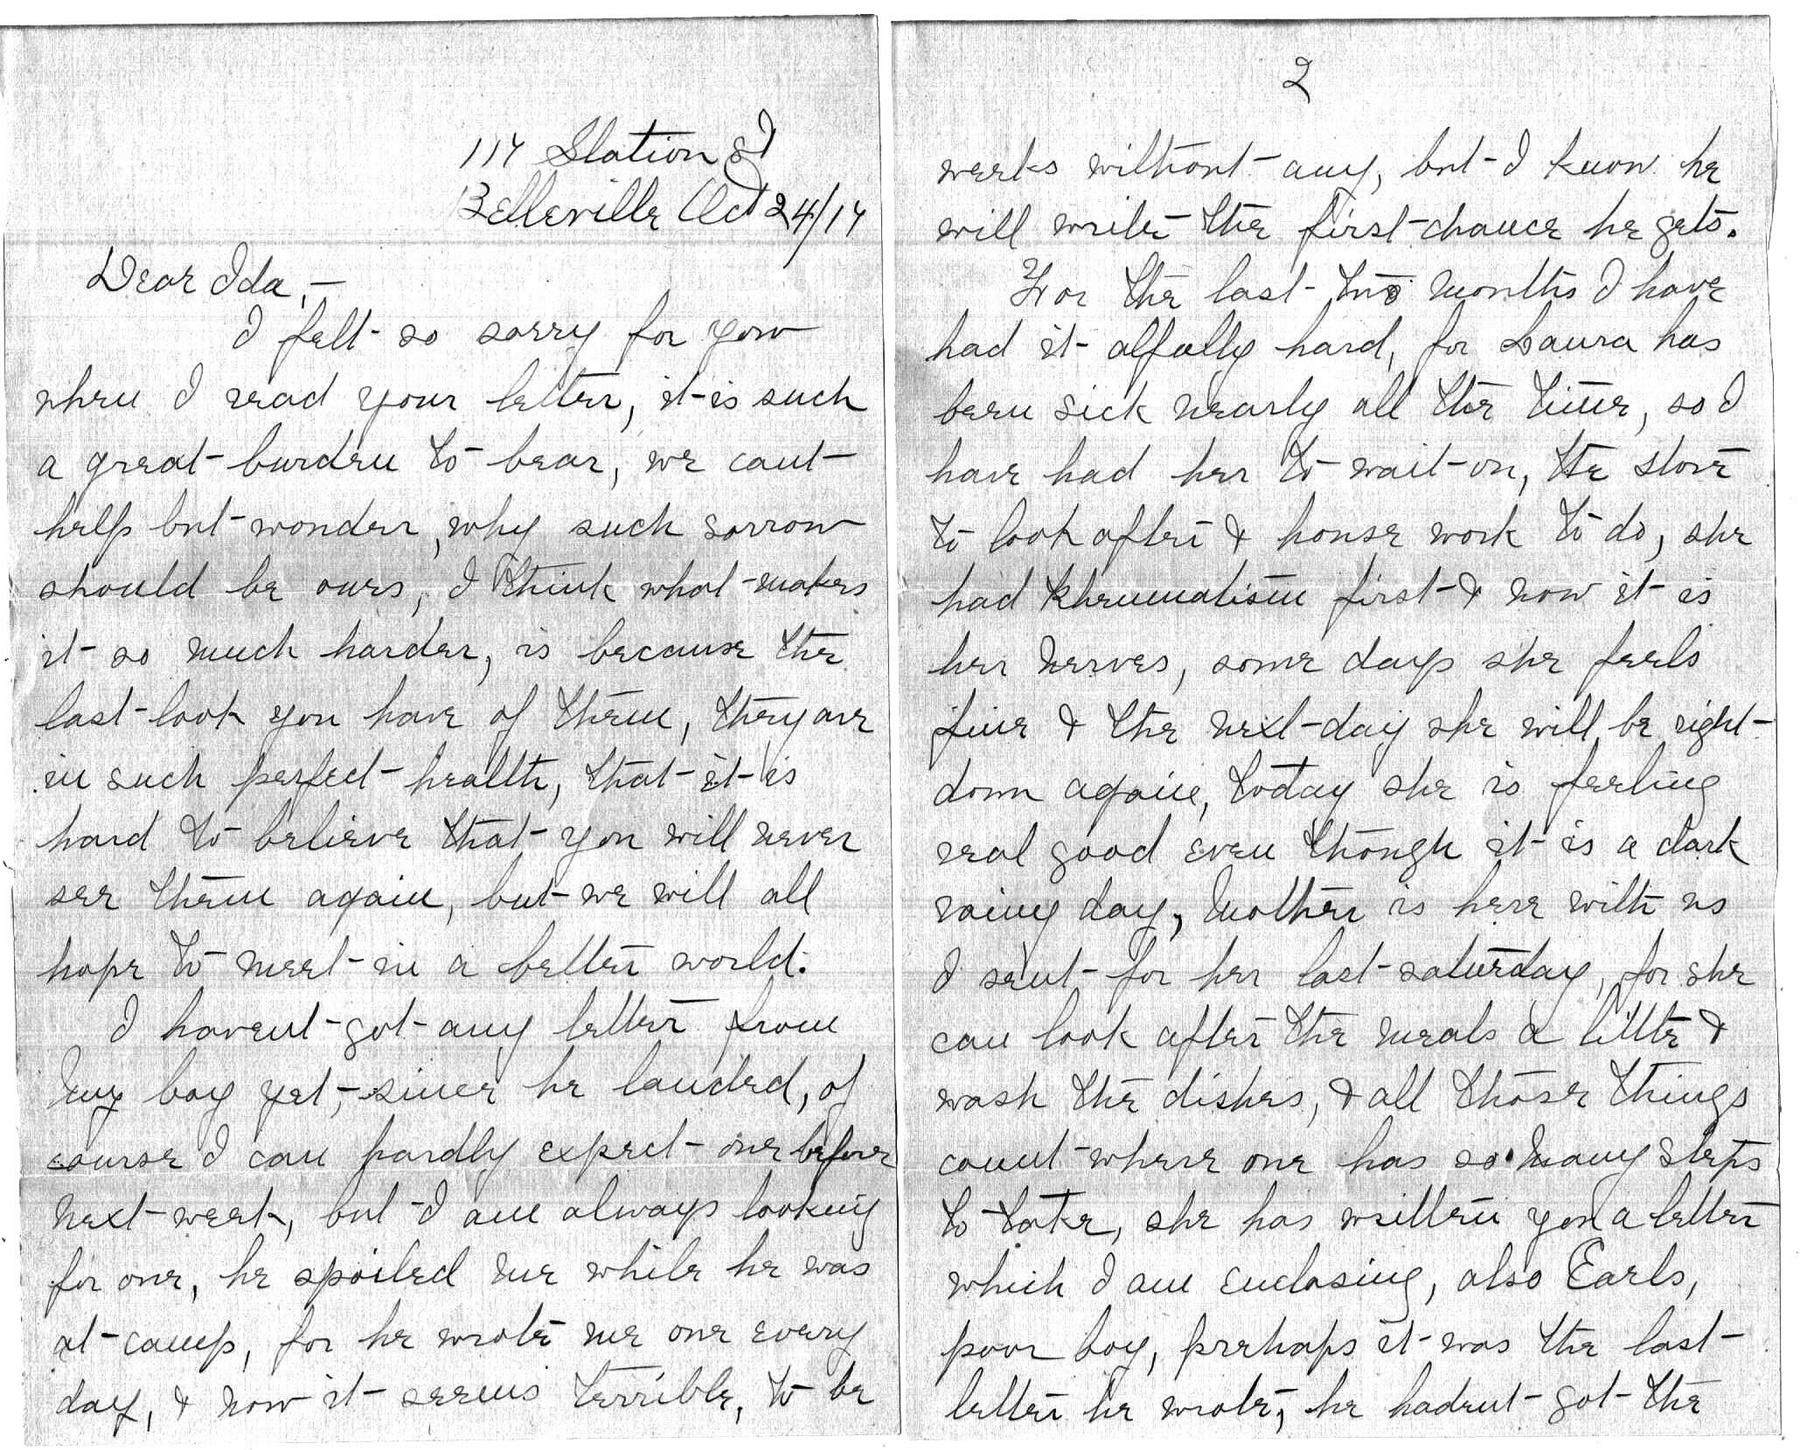 117 Station St
Belleville Oct 24/17
Dear Ida,—
I felt so sorry for you
when I read your letter, it is such
a great burden to bear, we cant
help but wonder, why such sorrow
should be ours, I think what makes
it so much harder, is because the
last look you have of them, they are
in such perfect health, that it is
hard to believe that you will never
see them again, but we will all
hope to meet in a better world.
I havent got any letter from
my boy yet, since he landed, of
course I can hardly expect one before
next week, but I am always looking
for one, he spoiled me while he was
at camp, for he wrote me one every
day, & now it seems terrible, to be
2
weeks without any, but I know he
will write the first chance he gets.
For the last two months I have
had it alfully hard, for Laura has
been sick nearly all the time, so I
have had her to wait on, the store
to look after & house work to do, she
had Rheumatism first & now it is
her nerves, some days she feels
fine & the next day she will be right
down again, today she is feeling
real good even though it is a dark
rainy day, Mother is here with us
I sent for her last saturday, for she
can look after the meals a little &
wash the dishes, & all those things
count where one has so many steps
to take, she has written you a letter
which I am enclosing, also Earls,
poor boy, perhaps it was the last
letter he wrote, he hadent got the